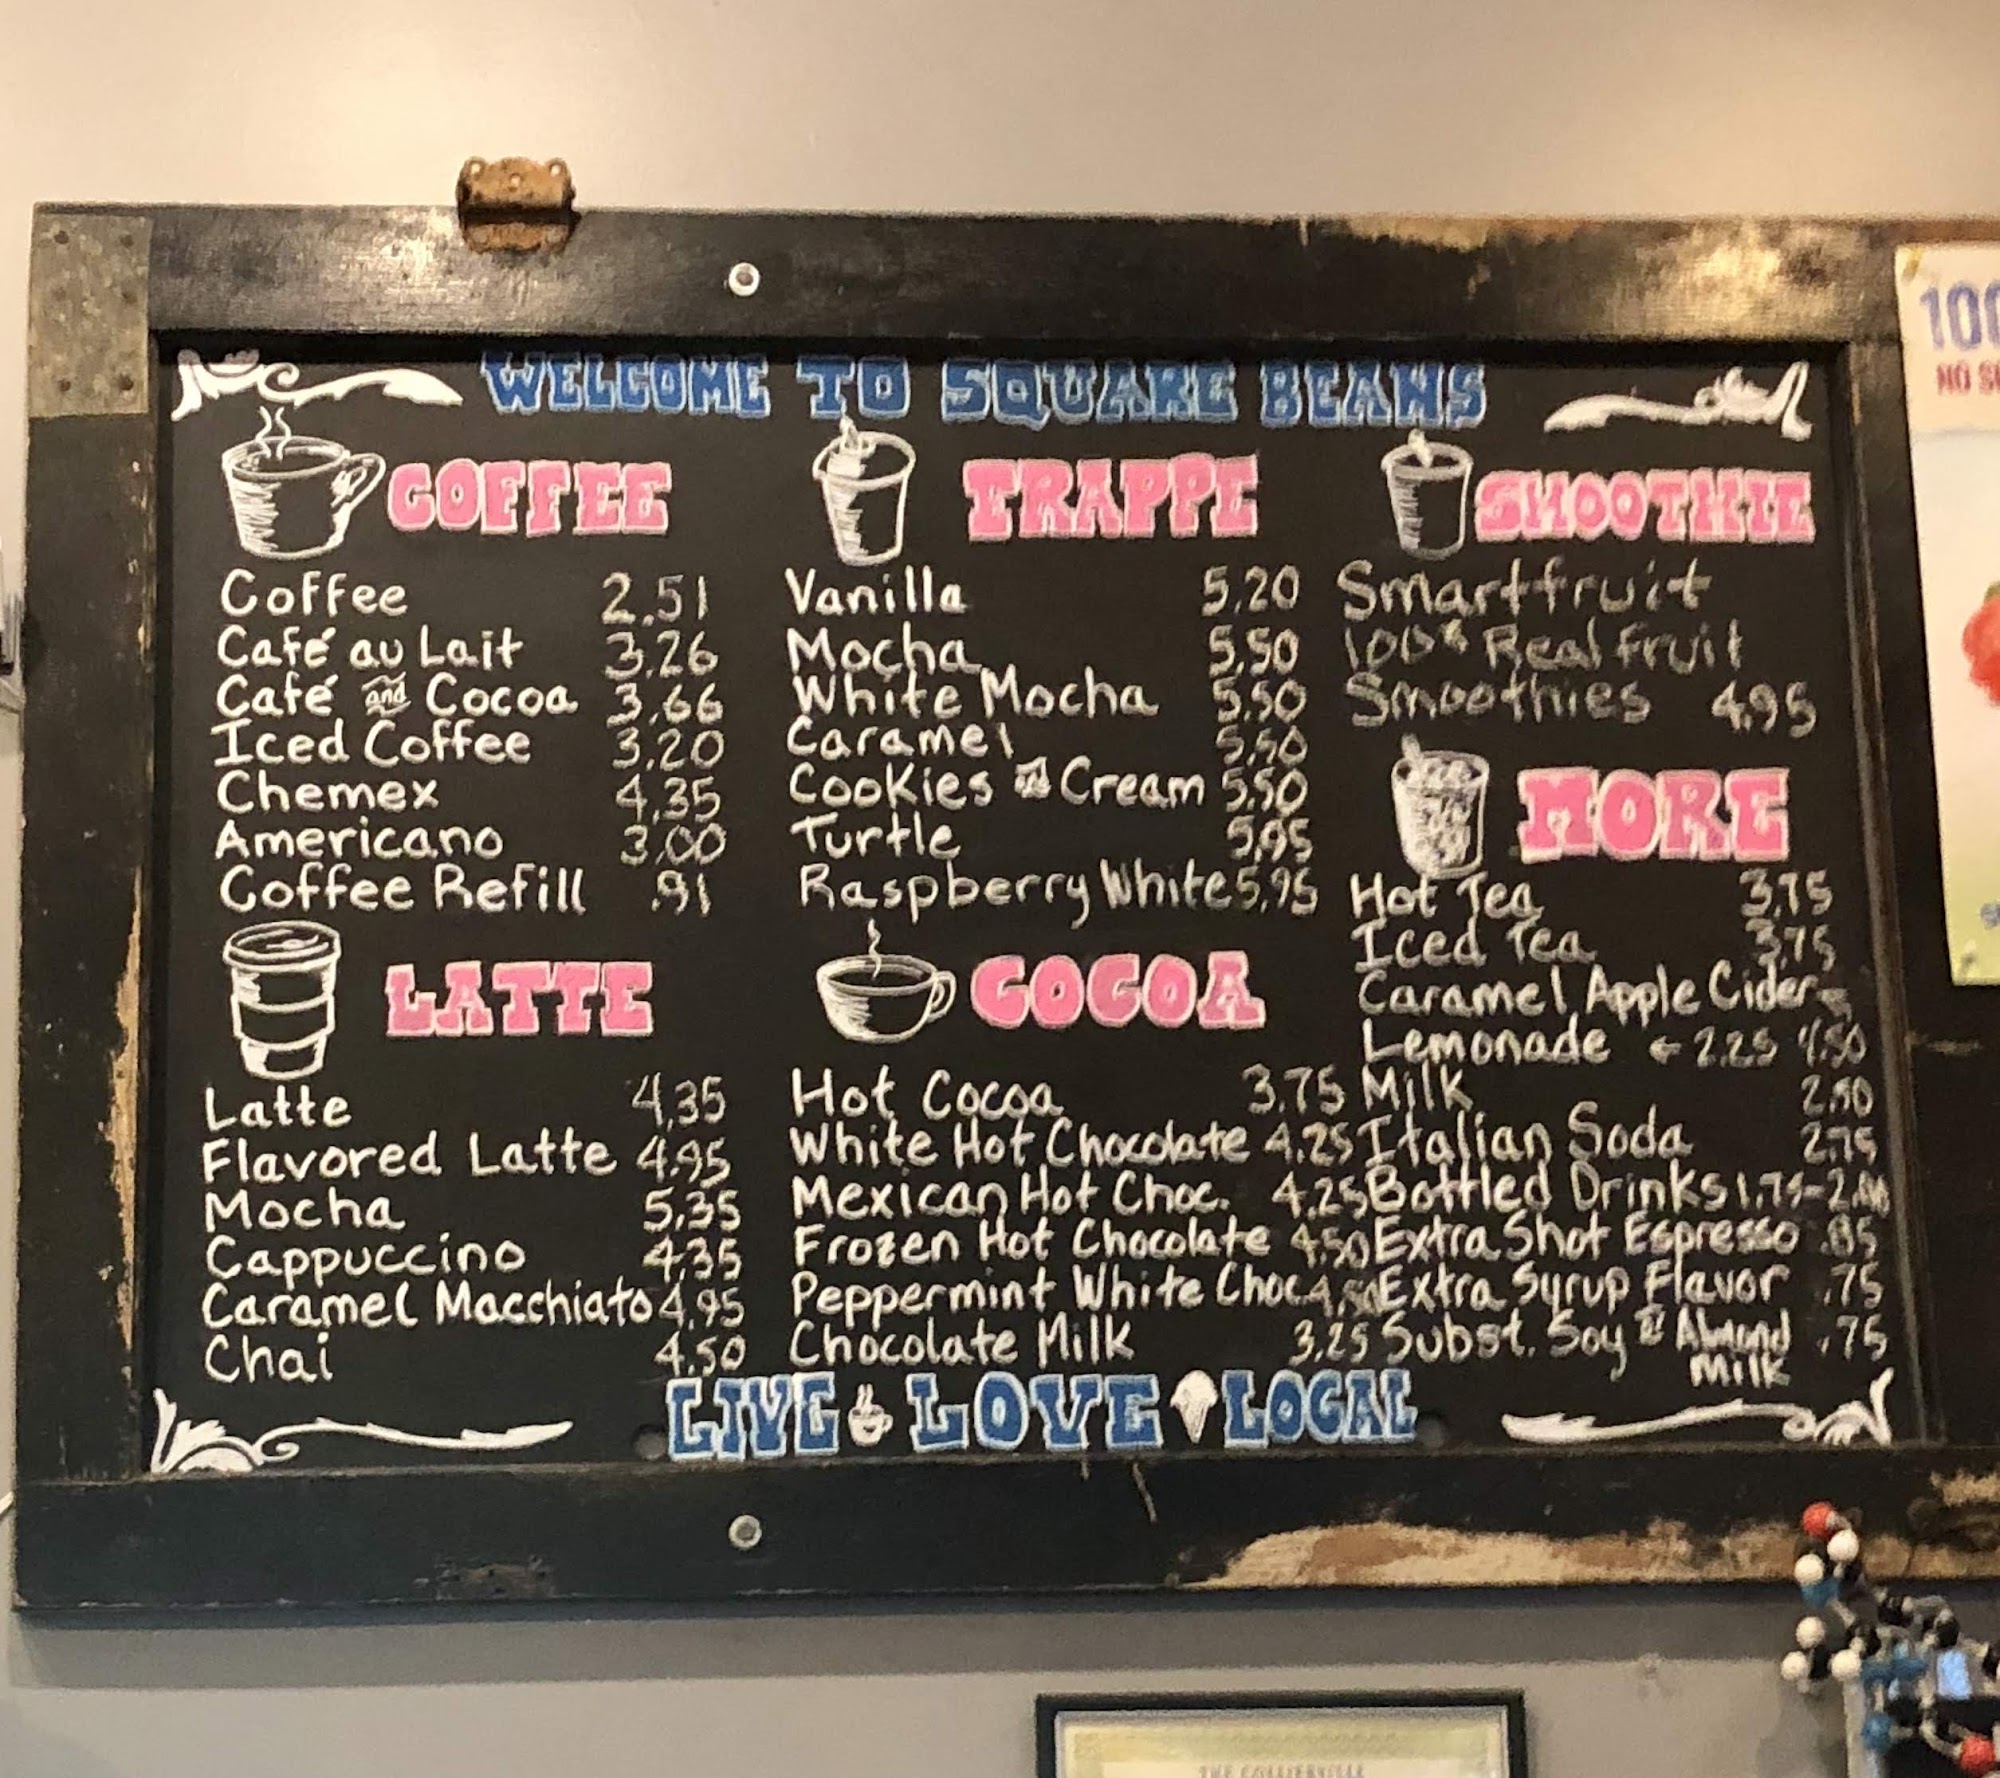 WELCOME TO SQUARE BEANS
COFFEE
Coffee 2.51
Café au Lait 3.26
Café and Cocoa 3.66
Iced Coffee 3.20
Chemex 4.35
Americano 3.00
Coffee Refill .91
LATTE
Latte 4.35
Flavored Latte 4.95
Mocha 5.35
Cappuccino 4.35
Caramel Macchiato 4.95
Chai 4.50
FRAPPE
Vanilla 5.20
Mocha 5.50
White Mocha 5.50
Caramel 5.50
Cookies and Cream 5.50
Turtle 5.95
Raspberry White 5.95
COCOA
Hot Cocoa 3.75
White Hot Chocolate 4.25
Mexican Hot Choc. 4.25
Frozen Hot Chocolate 4.50
Peppermint White Choc. 4.50
Chocolate Milk 3.25
SMOOTHIE
Smartfruit
100% Real Fruit
Smoothies 4.95
MORE
Hot Tea 3.75
Iced Tea 3.75
Caramel Apple Cider
Lemonade ← 2.25 4.50
Milk 2.50
Italian Soda 2.75
Bottled Drinks 1.75-
Extra Shot Espresso .85
Extra Syrup Flavor .75
Subst. Soy Almond .75
Milk
LIVE LOVE LOCAL
100
THE COLLIERVILLE